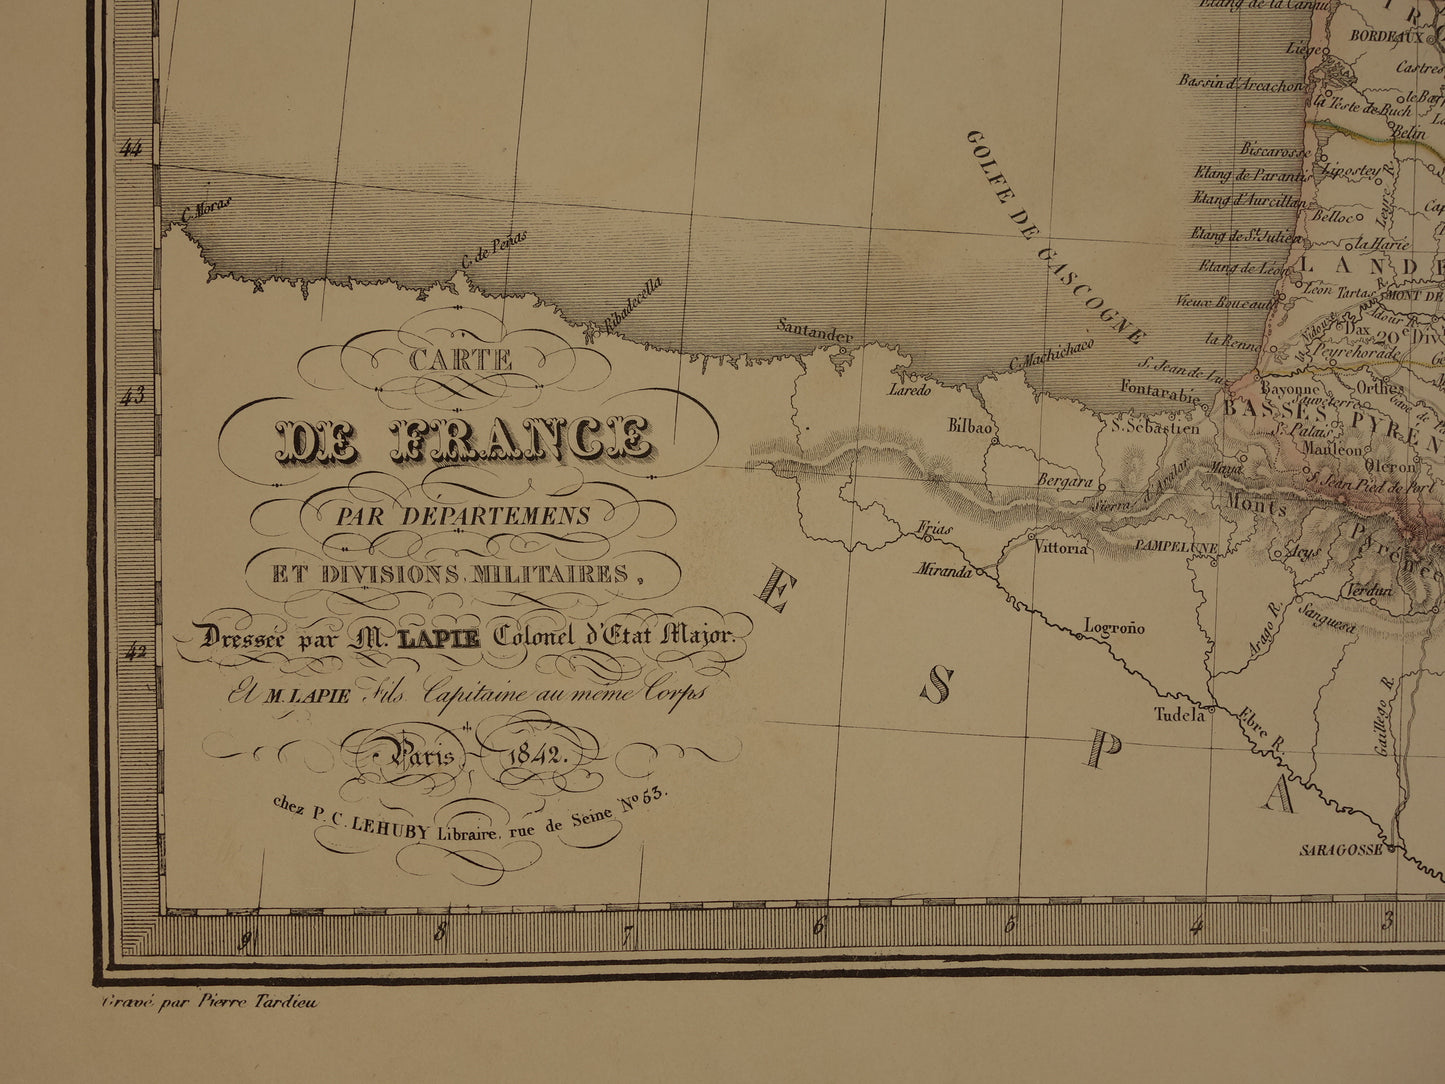 Etang de la Canau
I R
BORDEAUX
Liége
Castres
Bassin d'Arcachon
le Bar
la Teste de Buch
Belin
44
GOLFE DE GASCOGNE
Biscarosse
Etang de Parantis
Lipostey
Leyre R.
Etang d'Aurcillan
Belloc
C. Moras
C. de Peñas
Etang de St. Julien
la Harie
Etang de Léon
LANDE
Léon
Tartas
MONT DE
Ribadecella
Vieux Boucaut
Adour R.
Santander
la Renne
Dax
20e Div
CARTE
C. Machichaco
Peyrehorade
S. Jean de Luz
43
Laredo
Fontarabie
Bayonne
Orthes
Sauveterre
BASSES PYREN
DE FRANCE
Bilbao
S. Sébastien
S. Palais
Mauléon
Oleron
Maya
Bergara
Sierra d'Aralar
S. Jean Pied de Port
PAR DÉPARTEMENS
Monts Pyrénée
Frias
Vittoria
PAMPELUNE
ET DIVISIONS MILITAIRES,
Miranda
E S P A
Verdun
Sanguesa
Arago R.
Logroño
42
Dressée par M. LAPIE Colonel d'Etat Major.
Et M. LAPIE Fils Capitaine au même Corps
Tudela
Ebre R.
Gallego R.
Paris, 1842.
chez P. C. LEHUBY Libraire, rue de Seine No 53.
SARAGOSSE
9 8 7 6 5 4 3
Gravé par Pierre Tardieu